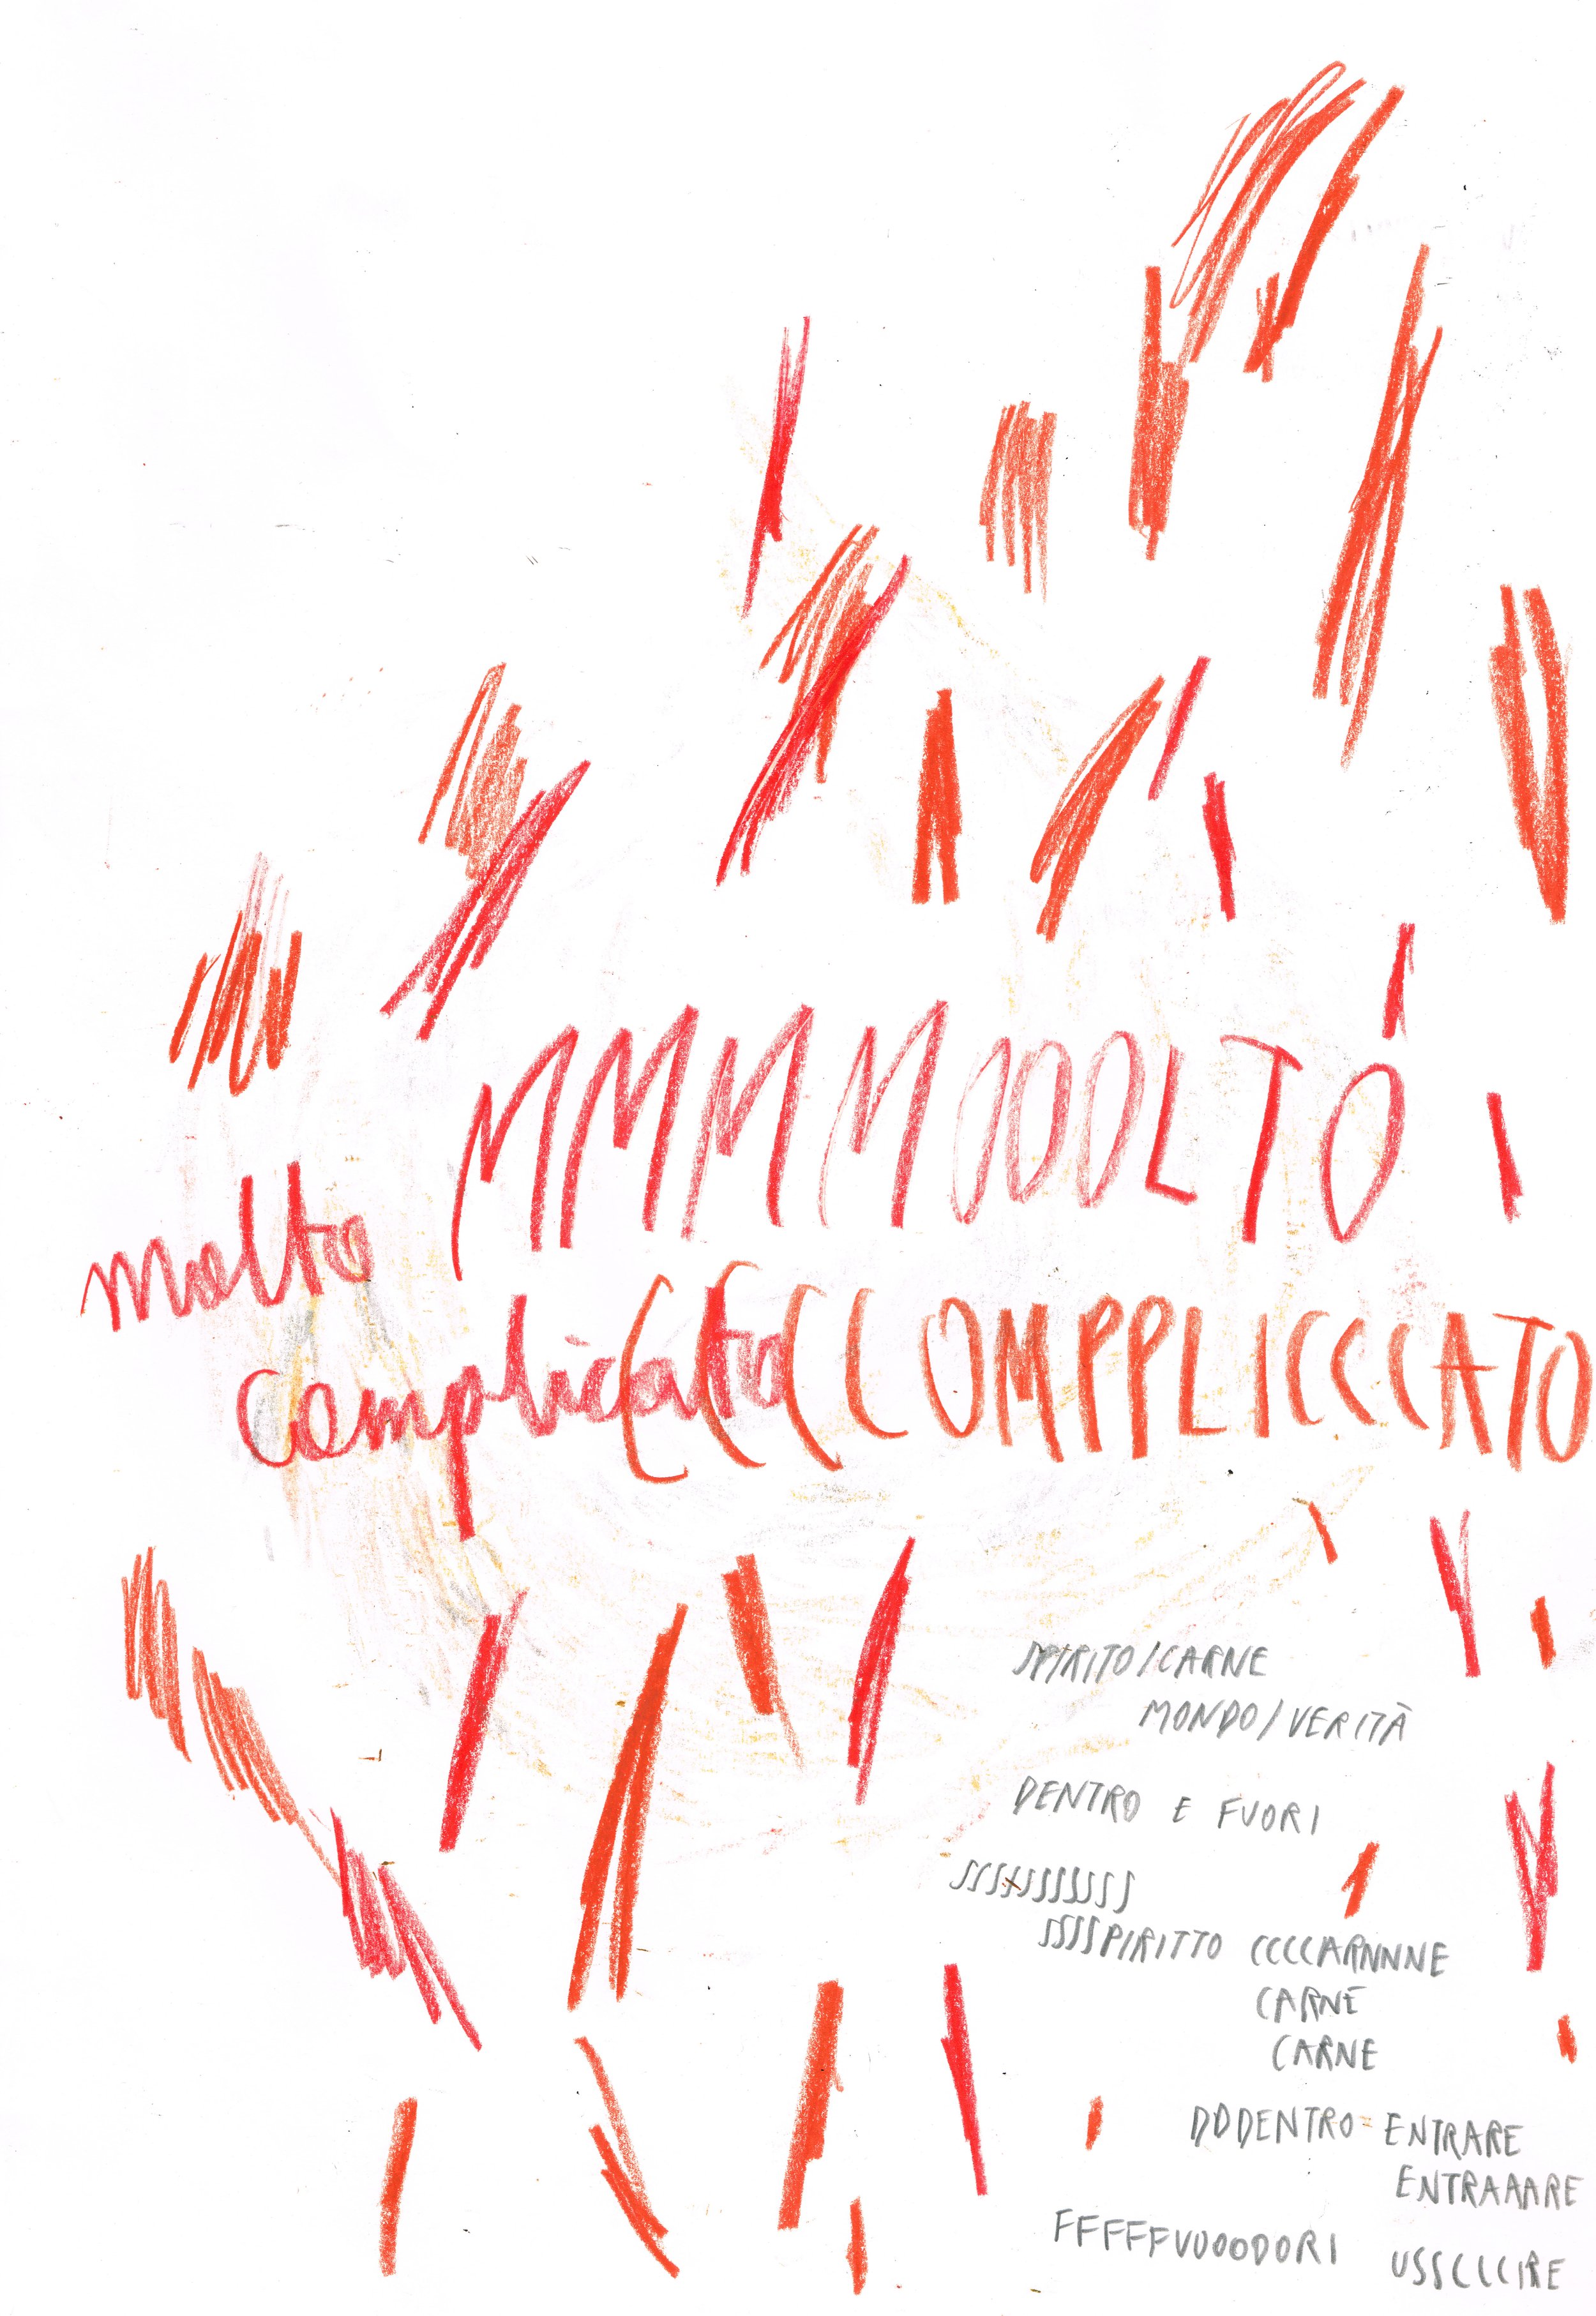 MMMMOOOLTO
molto
complicato
CCCCOMPPLICCCATO
SPIRITO/CARNE
MONDO/VERITÀ
DENTRO E FUORI
SSSSSSSSSSSS
SSSSPIRITTO CCCCARNNNE
CARNE
CARNE
DDDENTRO ENTRARE
ENTRAAARE
FFFFFVUOOOORI USSCCCIRE